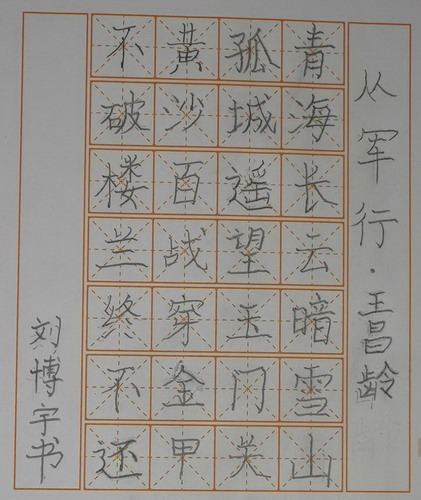 从军行·王昌龄
青海长云暗雪山
孤城遥望玉门关
黄沙百战穿金甲
不破楼兰终不还
刘博宇书